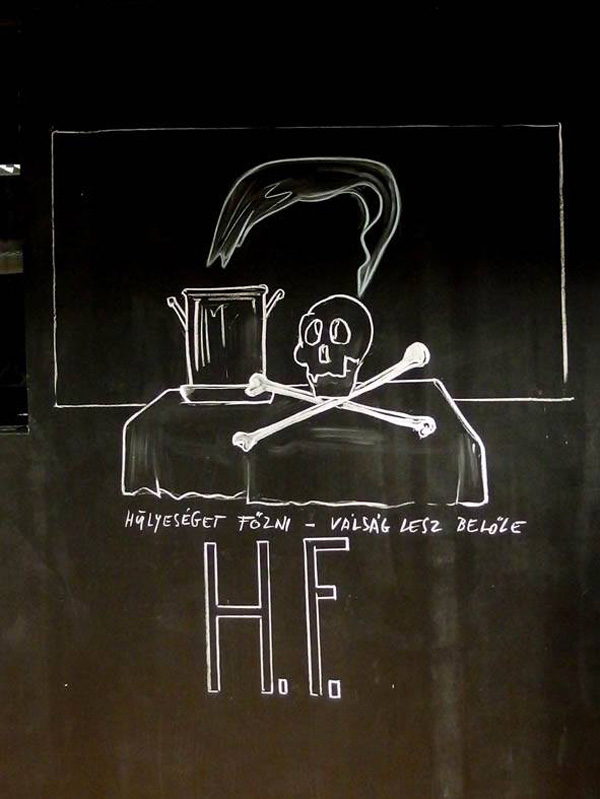 HÜLYESÉGET FŐZNI – VÁLSÁG LESZ BELŐLE
H.F.